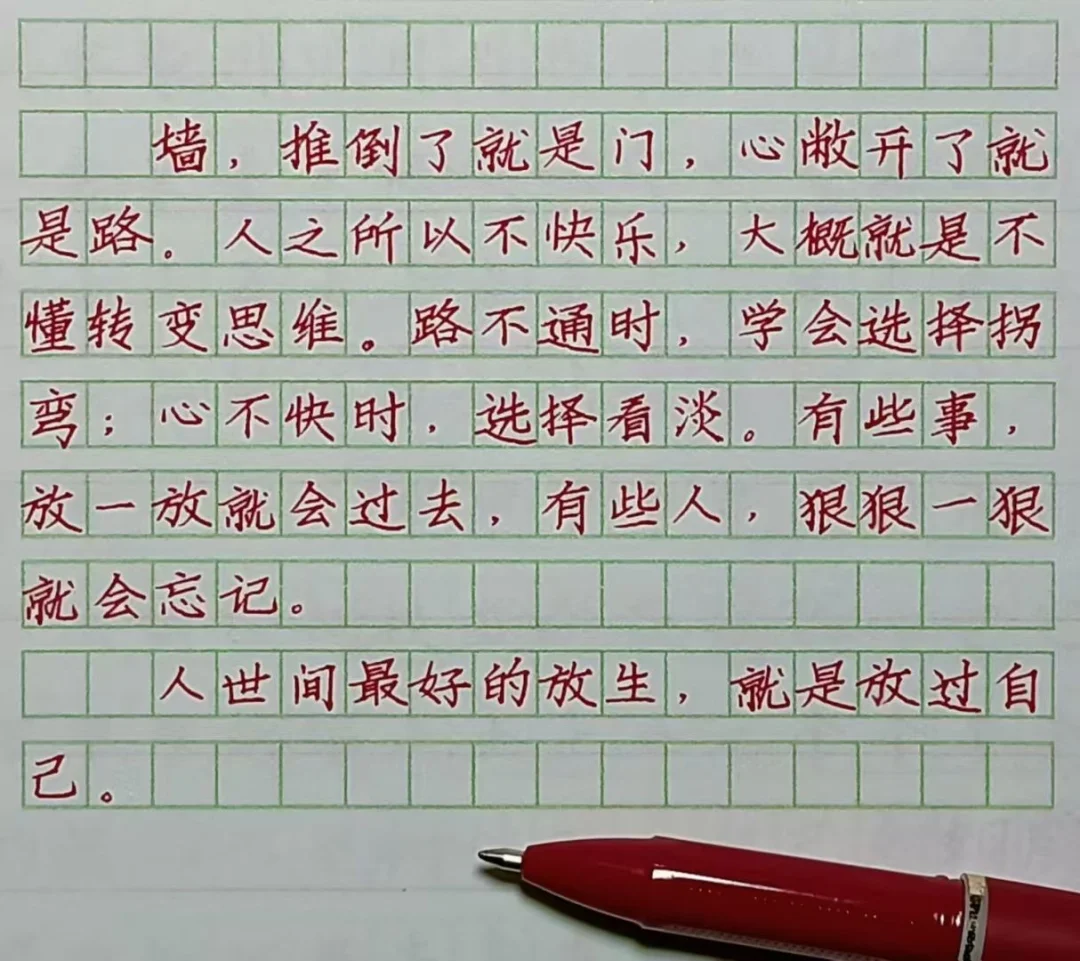 墙，推倒了就是门，心敞开了就
是路。人之所以不快乐，大概就是不
懂转变思维。路不通时，学会选择拐
弯；心不快时，选择看淡。有些事，
放一放就会过去，有些人，狠狠一狠
就会忘记。
人世间最好的放生，就是放过自
己。